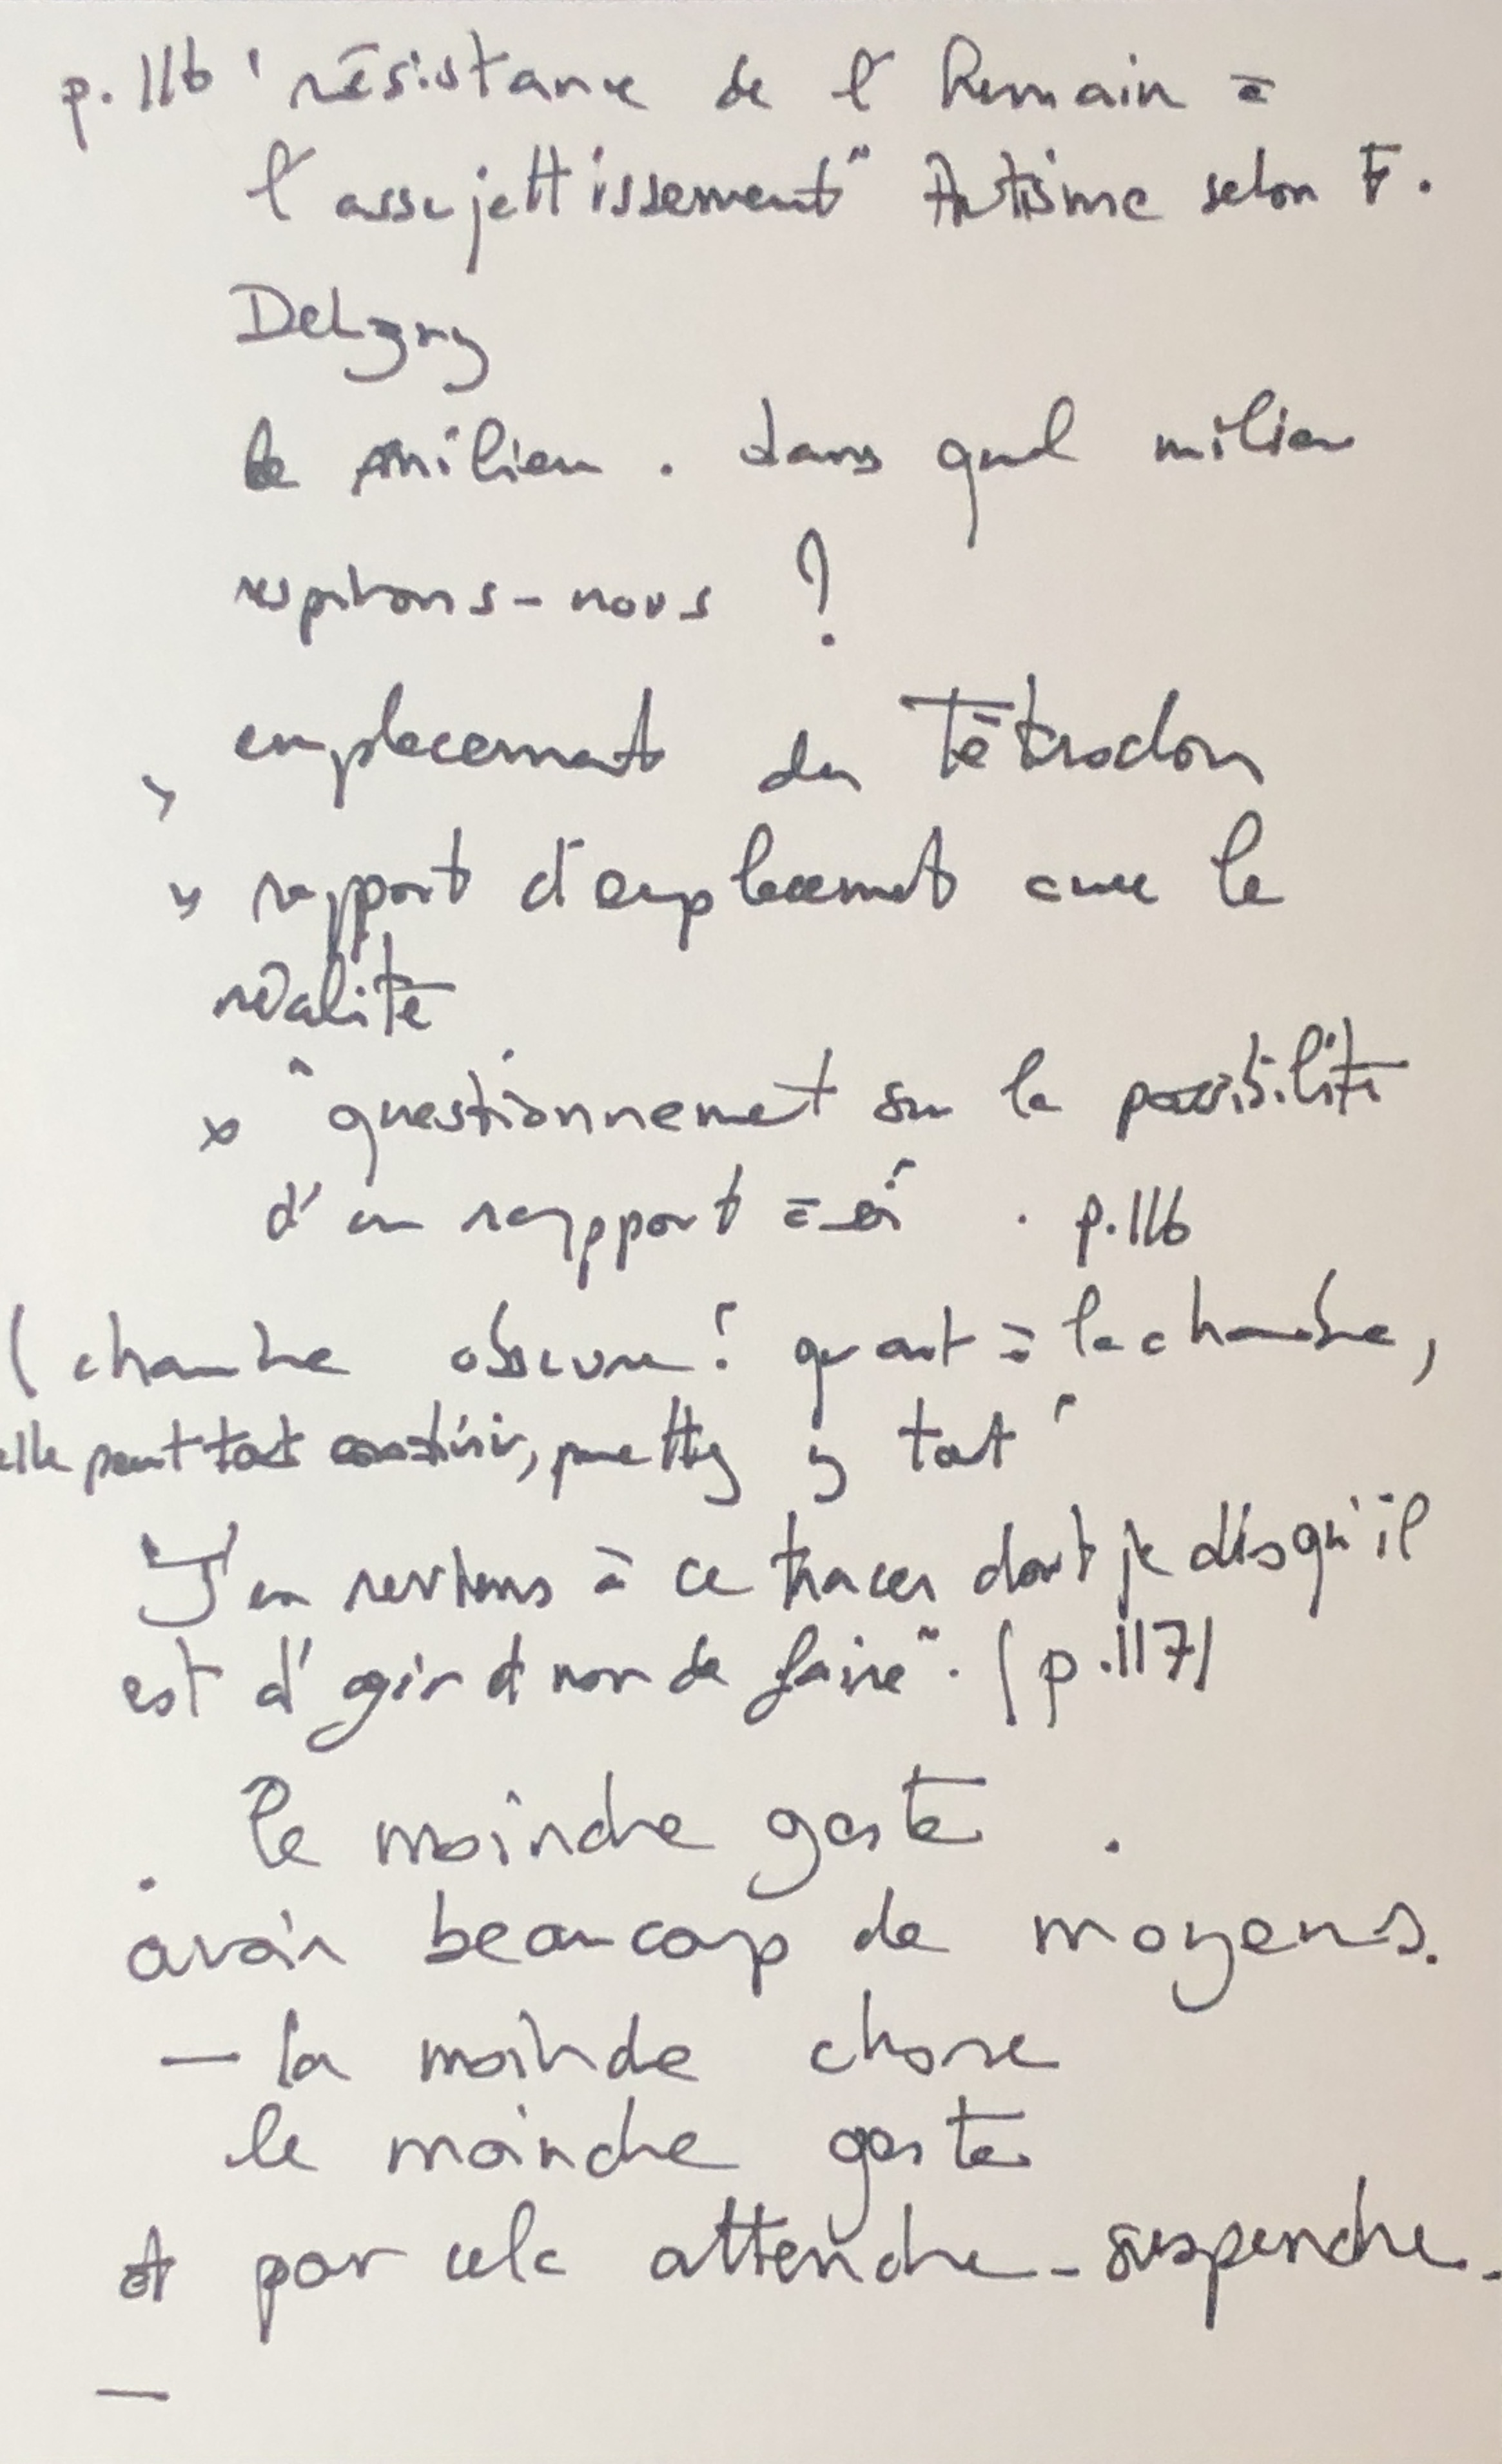 p. 116 "résistance de l'humain à
l'assujettissement" Autisme selon F.
Deligny
le milieu. dans quel milieu
respirons-nous ?
emplacement du Tétrodon
rapport d'emplacement avec la
réalité
x "questionnement sur la possibilité
d'un rapport à soi" . p. 116
(chambre obscure : quant à la chambre,
elle peut tout contenir, mettez y tout"
J'en reviens à ce tracer dont je dis qu'il
est d'agir et non de faire". (p. 117)
. le moindre geste .
avoir beaucoup de moyens.
— la moindre chose
le moindre geste
et pour cela attendre - suspendre -
—